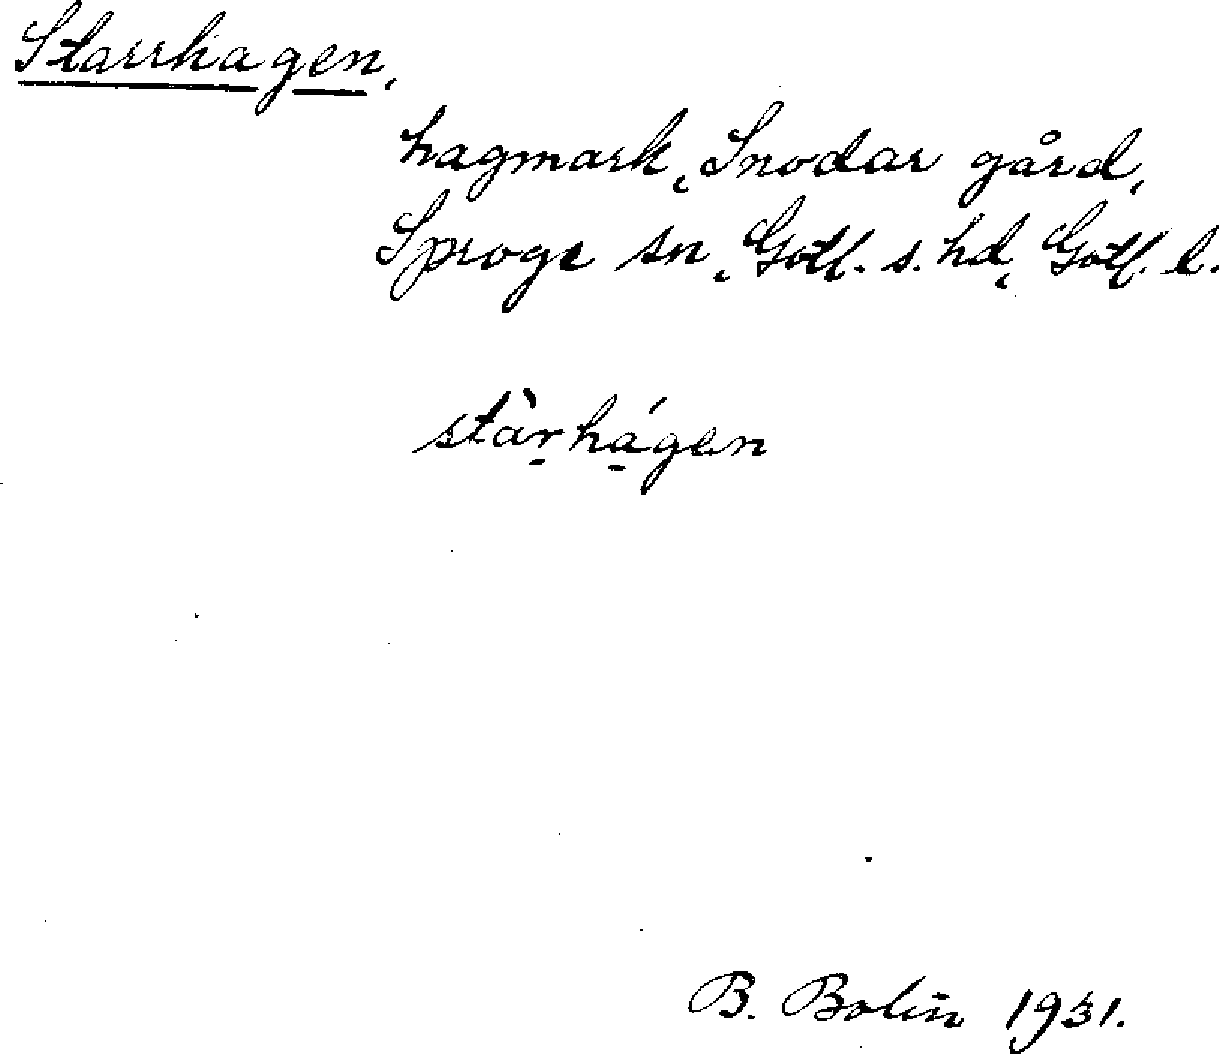 Starrhagen,
hagmark, Snodar gård,
Sproge sn, Gotl. s. hd, Gotl. l.
stàr̠há̠gen
B. Bolin 1931.